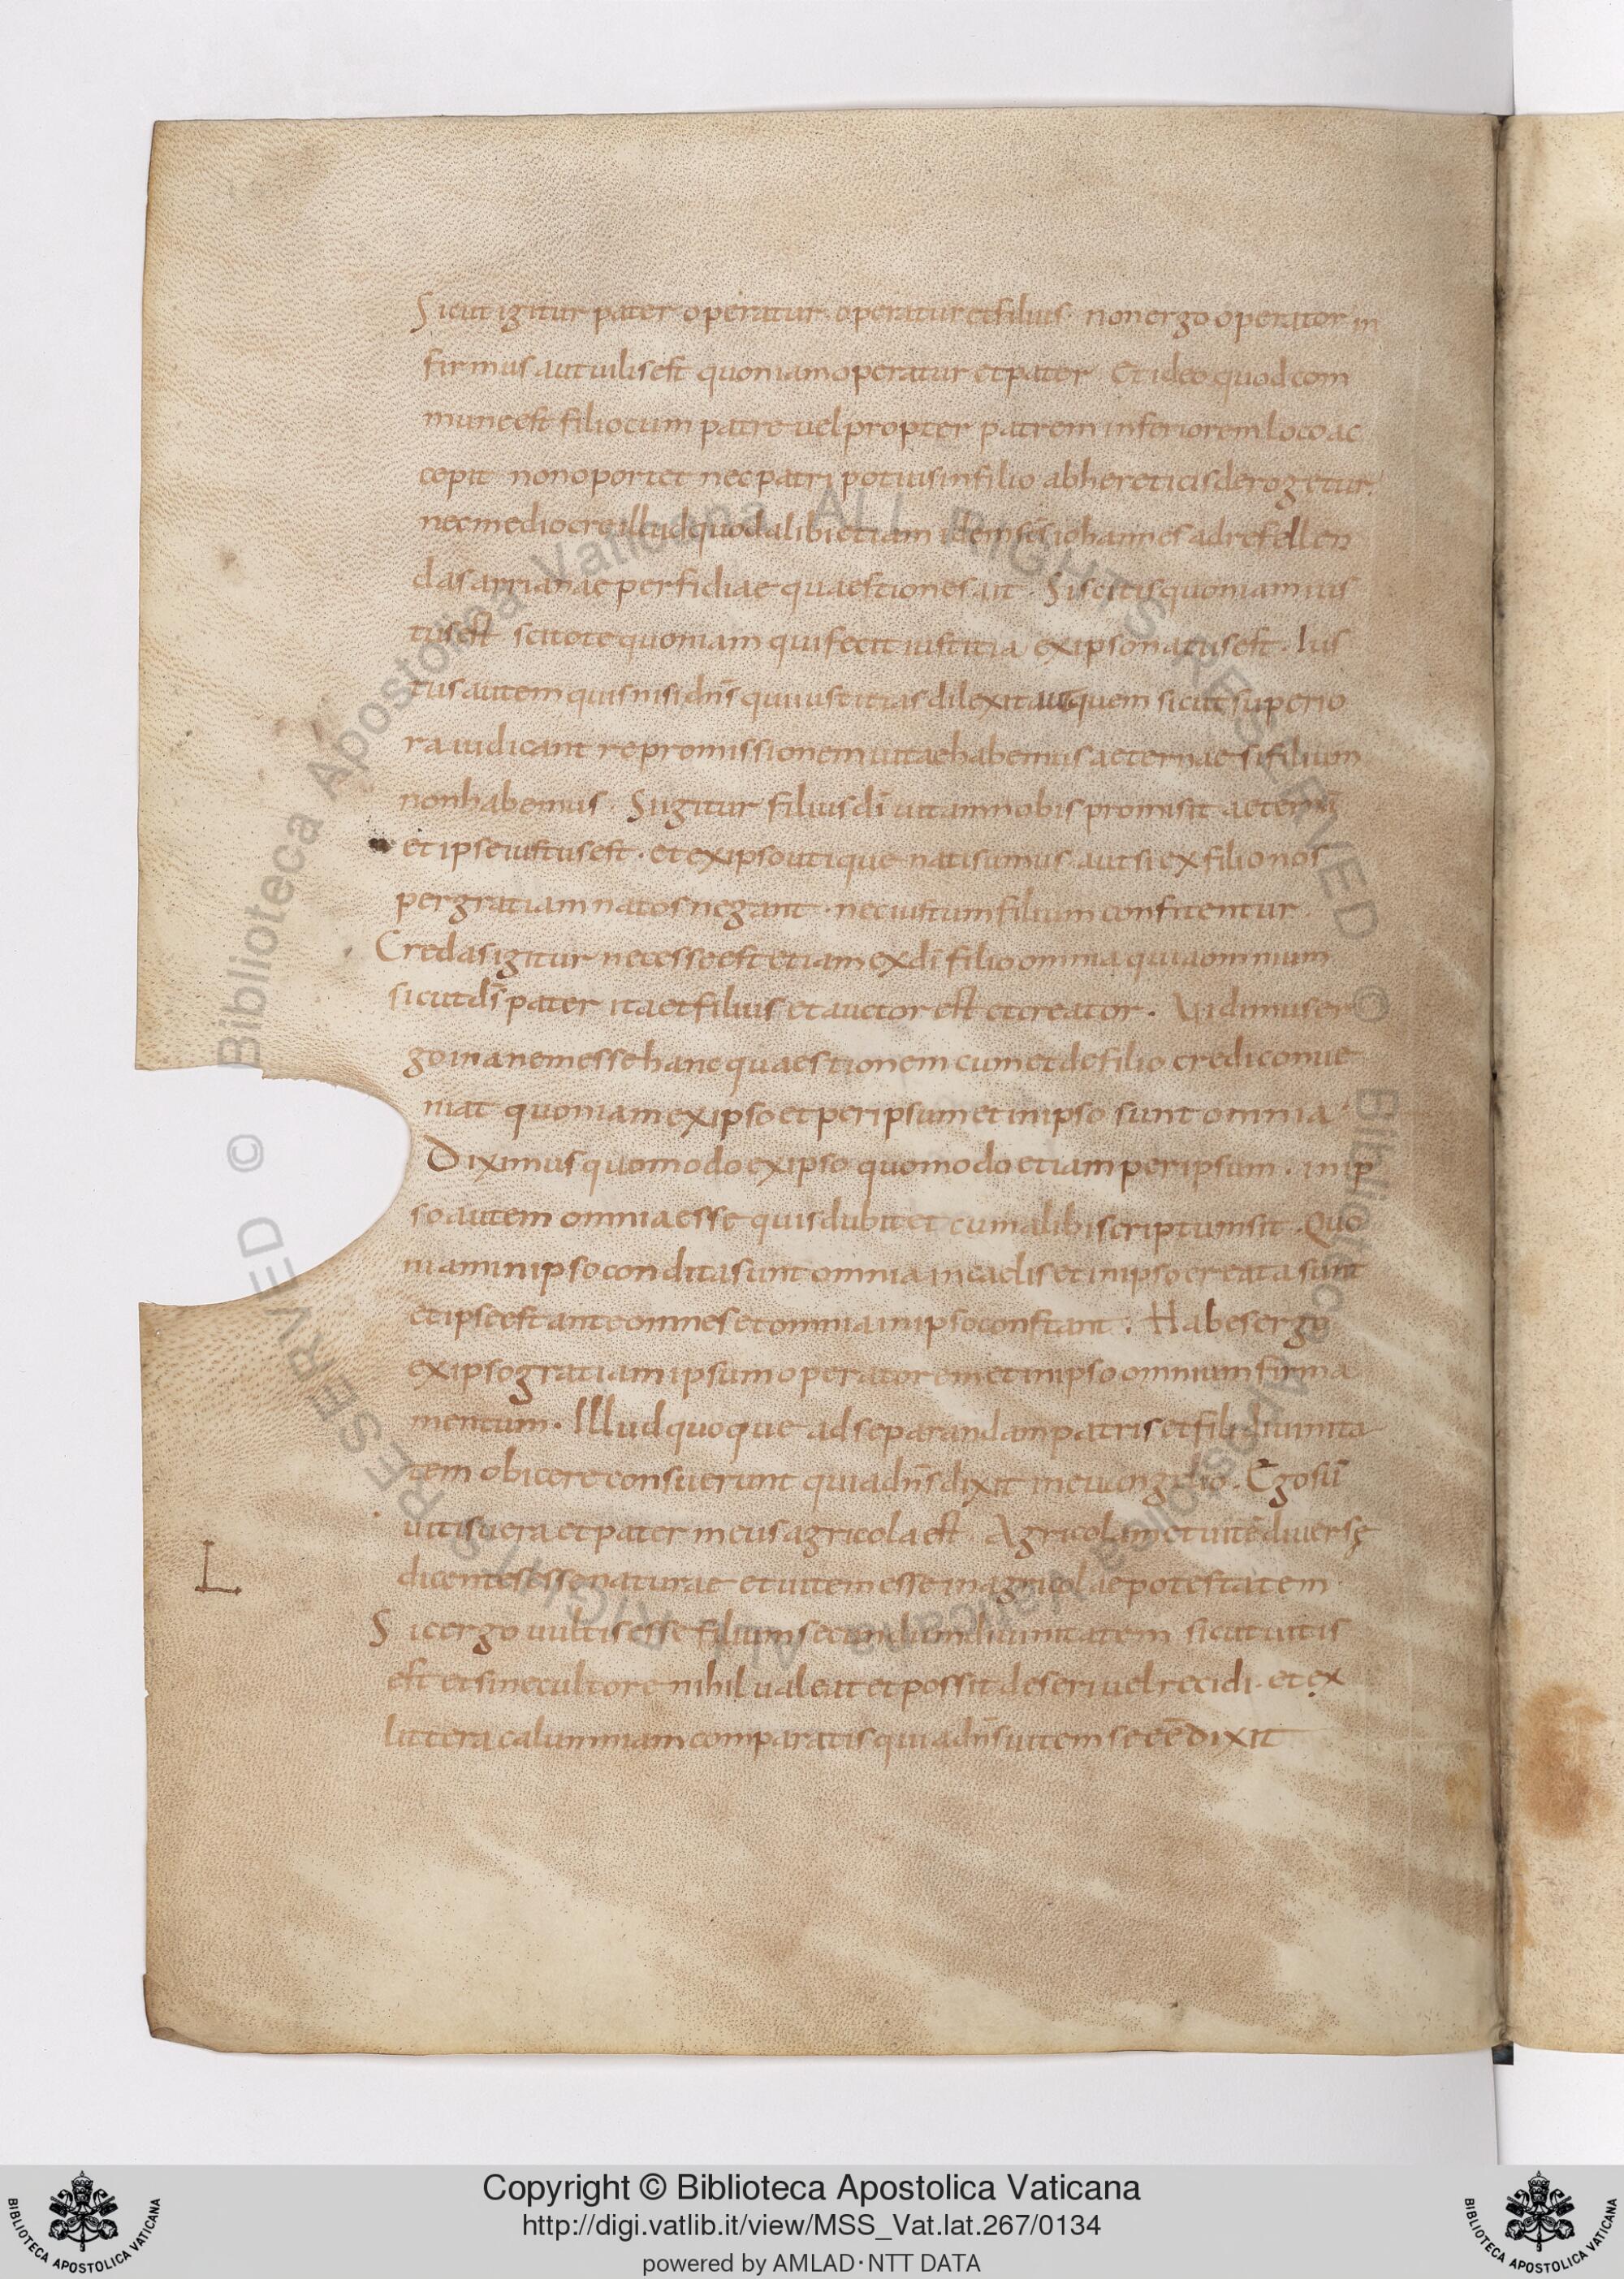 Sicut igitur pater operatur. operatur et filius. non ergo operator in
firmus aut uilis est quoniam operatur et pater. Et ideo quod com
mune est filio cum patre uel propter patrem inferiorem loco ac
cepit non oportet nec patri potius in filio ab hereticis derogetur.
nec mediocre illud quod alibi etiam idem scs̄ iohannes ad refellen
das arrianae perfidiae quaestiones ait. Si scitis quoniam ius
tus est scitote quoniam qui fecit iustitia ex ipso natus est. Ius
tus autem quis nisi dn̄s qui iustitias dilexit aut quem sicut superio
ra iudicant repromissionem uitae habemus aeternae si filium
non habemus. Si igitur filius dī uitam nobis promisit aeternā
et ipse iustus est. et ex ipso utique nati sumus. aut si ex filio nos
per gratiam natos negant. nec iustum filium confitentur.
Credas igitur necesse est etiam ex dī filio omnia quia omnium
sicut ds̄ pater ita et filius et auctor est et creator. Vidimus er
go inanem esse hanc quaestionem cum et de filio credi conue
niat quoniam ex ipso et per ipsum et in ipso sunt omnia.
Diximus quomodo ex ipso quomodo etiam per ipsum. in ip
so autem omnia esse quis dubitet cum alibi scriptum sit. Quo
niam in ipso condita sunt omnia in caelis et in ipso creata sunt
et ipse est ante omnes et omnia in ipso constant. Habes ergo
ex ipso gratiam ipsum operatorem et in ipso omnium firma
mentum. Illud quoque ad separandam patris et fili diuinita
tem obicere consuerunt quia dn̄s dixit in euangelio. Ego sū
uitis uera et pater meus agricola est. Agricolam et uitē diuersę
dicentes esse naturae et uitem esse in agricolae potestatem.
L
Sic ergo uultis esse filium secundum diuinitatem sicut uitis
est et sine cultore nihil ualeat et possit deseri uel recidi. et ex
littera calumniam comparatis quia dn̄s uitem se eē dixit
Copyright © Biblioteca Apostolica Vaticana
http://digi.vatlib.it/view/MSS_Vat.lat.267/0134
powered by AMLAD · NTT DATA
BIBLIOTECA APOSTOLICA VATICANA
BIBLIOTECA APOSTOLICA VATICANA
© Biblioteca Apostolica Vaticana ALL RIGHTS RESERVED
© Biblioteca Apostolica Vaticana ALL RIGHTS RESERVED